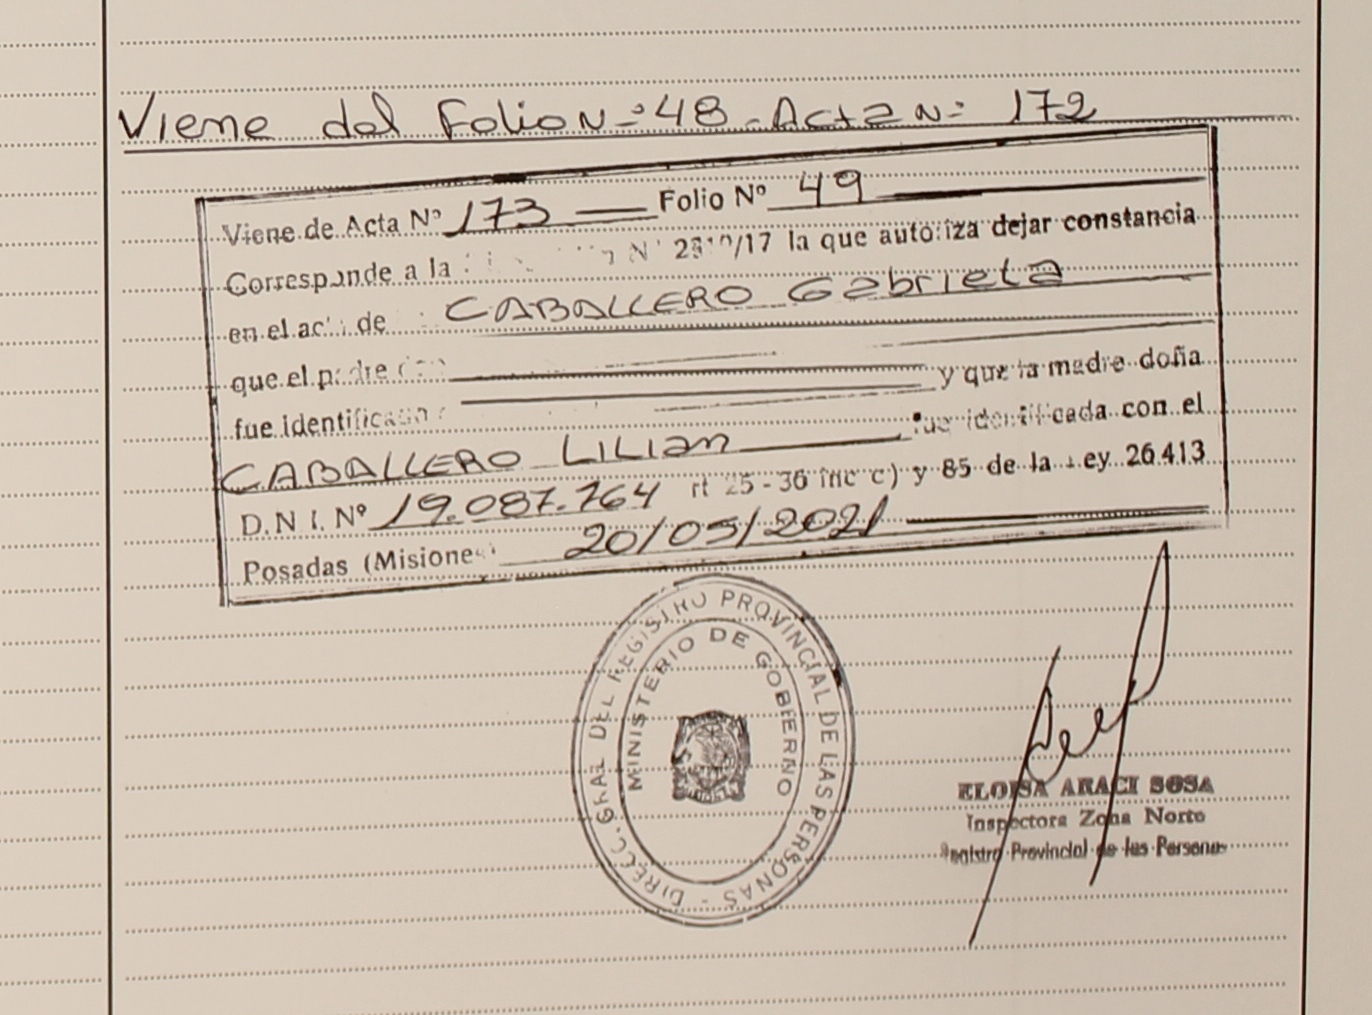 Viene del Folio N=48 - Acta N= 172
Viene de Acta Nº 173 Folio Nº 49
Corresponde a la /17 la que autoriza dejar constancia
en el de CABALLERO Gabriela
que el padre y que la madre doña
fue identificado fue identificada con el
CABALLERO LILIAN
D.N I. Nº 19.087.764 25-36 inc c) y 85 de la Ley 26413
Posadas (Misiones 20/05/2021
DIRECC. GRAL DEL REGISTRO PROVINCIAL DE LAS PERSONAS -
MINISTERIO DE GOBIERNO
ELOISA ARACI SOSA
Inspectora Zona Norte
Registro Provincial de las Personas